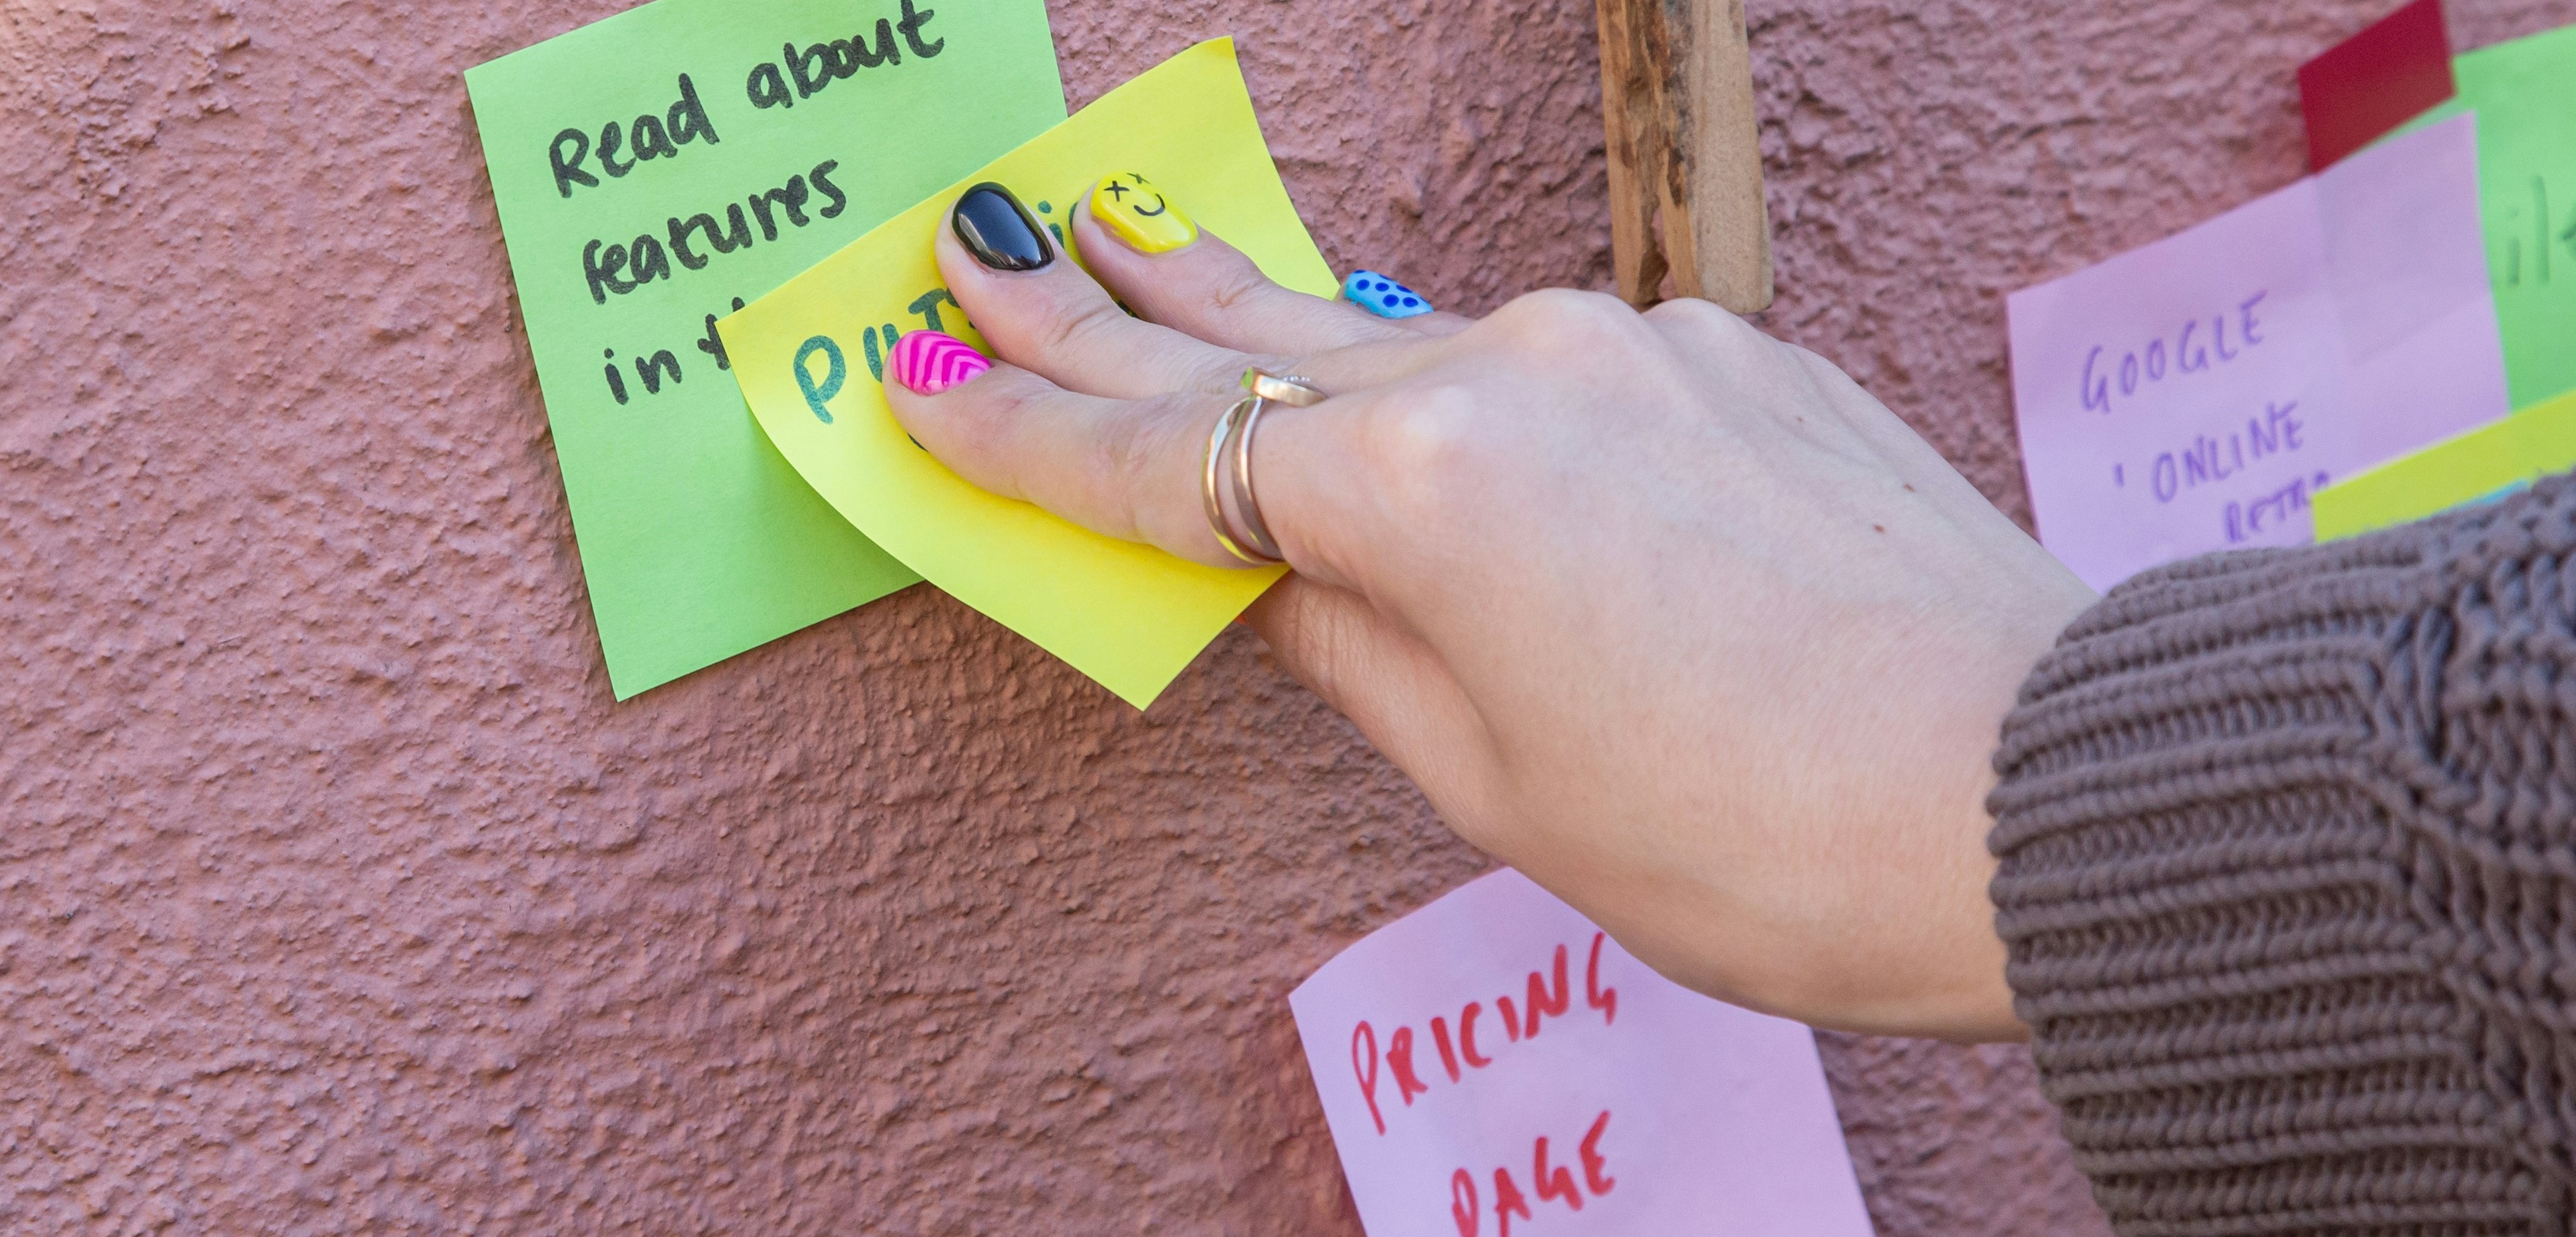 Read about
features
in
GOOGLE
' ONLINE
RETRO
PRICING
PAGE